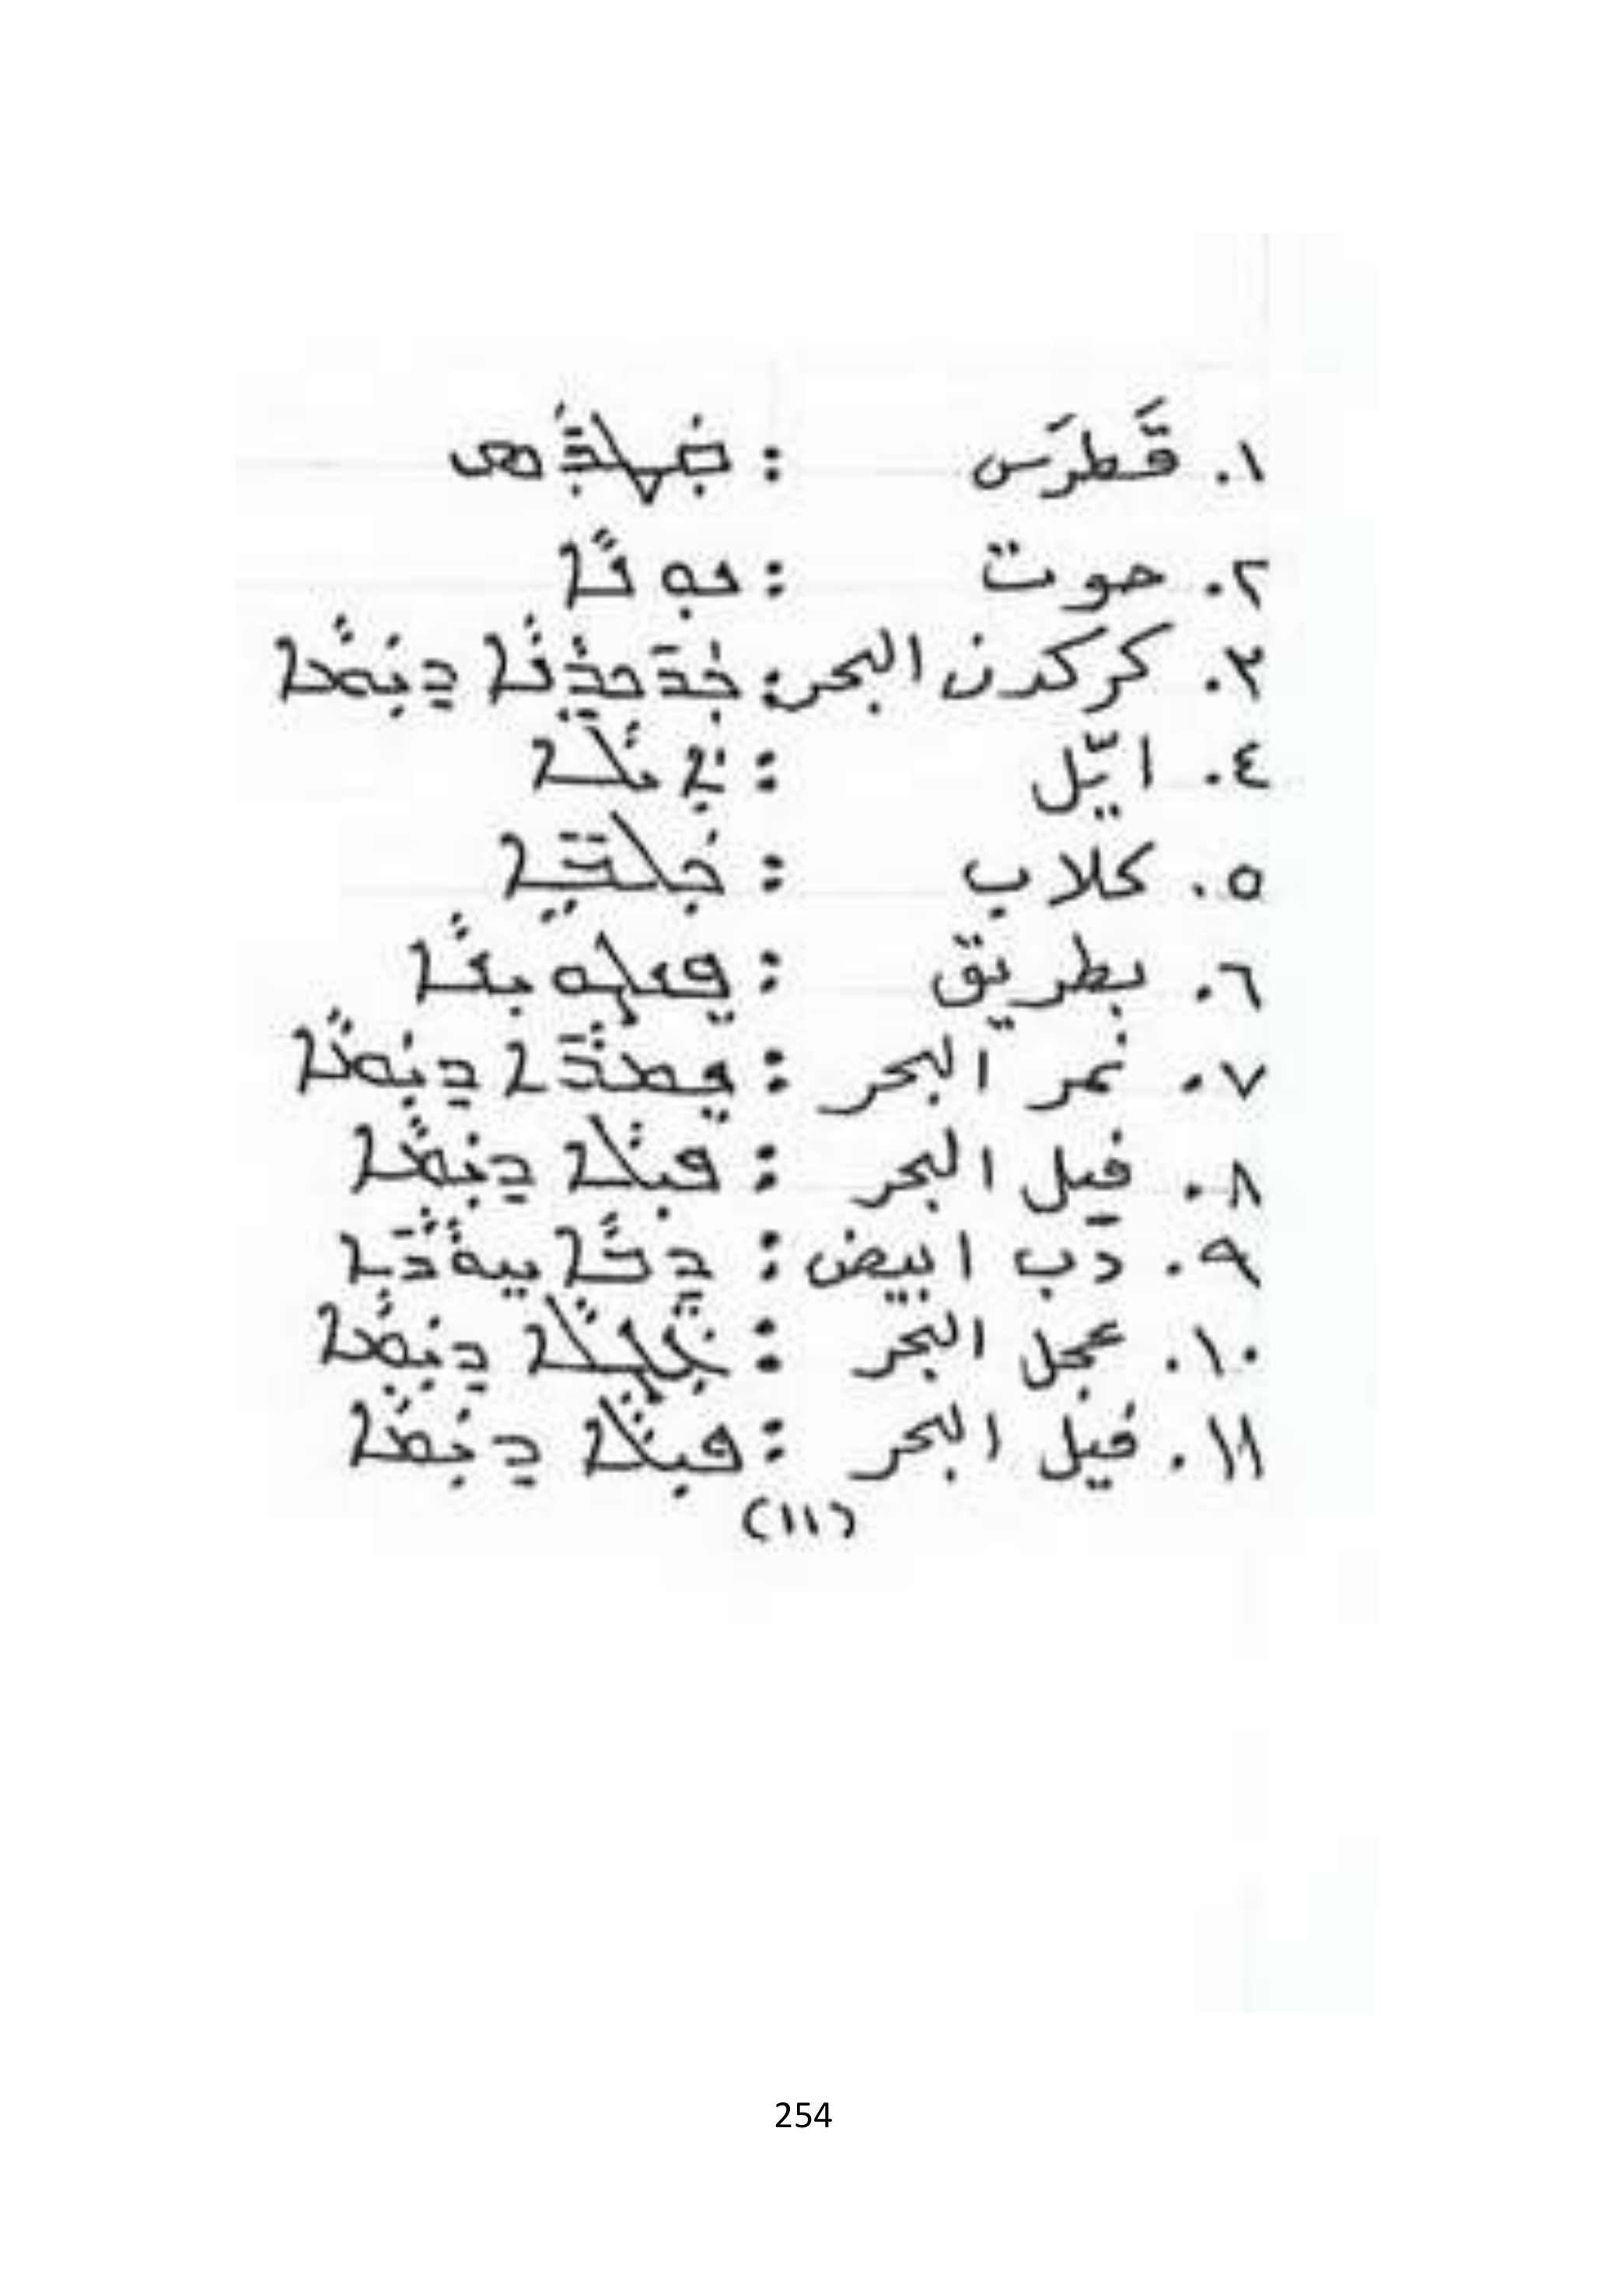 ١. قَطرَس : ܩܲܛܪܲܣ
٢. حوت : ܚܘܼܬܵܐ
٣. كركدن البحر : ܟܲܪܟܕܲܢܵܐ ܕܝܲܡܵܐ
٤. ايّل : ܐܲܝܠܵܐ
٥. كلاب : ܟܲܠܒܹ̈ܐ
٦. بطريق :
٧. نمر البحر : ܕܝܲܡܵܐ
٨. فيل البحر : ܦܝܼܠܵܐ ܕܝܲܡܵܐ
٩. دب ابيض : ܕܸܒܵܐ ܚܸܘܵܪܵܐ
١٠. عجل البحر : ܥܸܓܠܵܐ ܕܝܲܡܵܐ
١١. فيل البحر : ܦܝܼܠܵܐ ܕܝܲܡܵܐ
(١١)
254